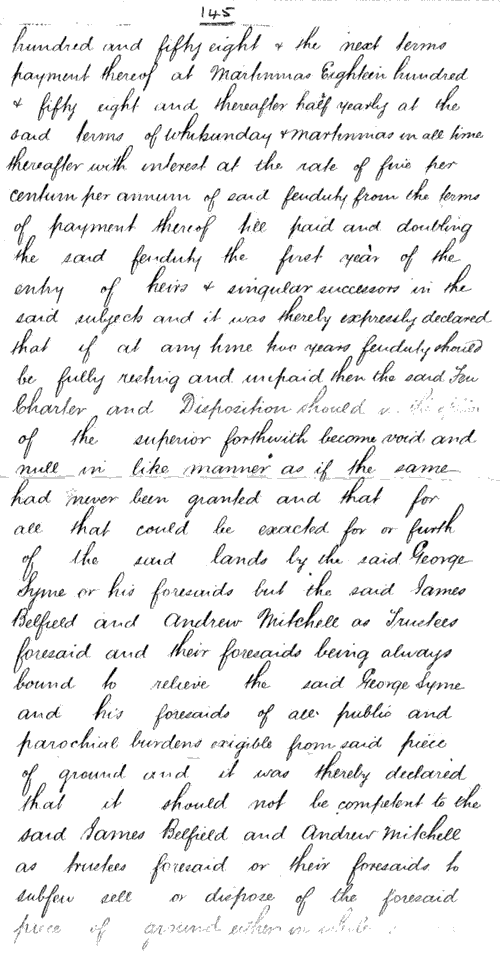 145
hundred and fifty eight & the next terms
payment thereof at Martinmas Eighteen hundred
& fifty eight and thereafter half yearly at the
said terms of Whitsunday & Martinmas in all time
thereafter with interest at the rate of five per
centum per annum of said feuduty from the terms
of payment thereof till paid and doubling
the said feuduty the first year of the
entry of heirs & singular successors in the
said subjects and it was thereby expressly declared
that if at any time two years feuduty should
be fully resting and unpaid then the said Feu
Charter and Disposition should in the option
of the superior forthwith become void and
null in like manner as if the same
had never been granted and that for
all that could be exacted for or furth
of the said lands by the said George
Syme or his foresaids but the said James
Belfield and Andrew Mitchell as Trustees
foresaid and their foresaids being always
bound to relieve the said George Syme
and his foresaids of all public and
parochial burdens exigible from said piece
of ground and it was thereby declared
that it should not be competent to the
said James Belfield and Andrew Mitchell
as trustees foresaid or their foresaids to
subfeu sell or dispose of the foresaid
piece of ground either in whole